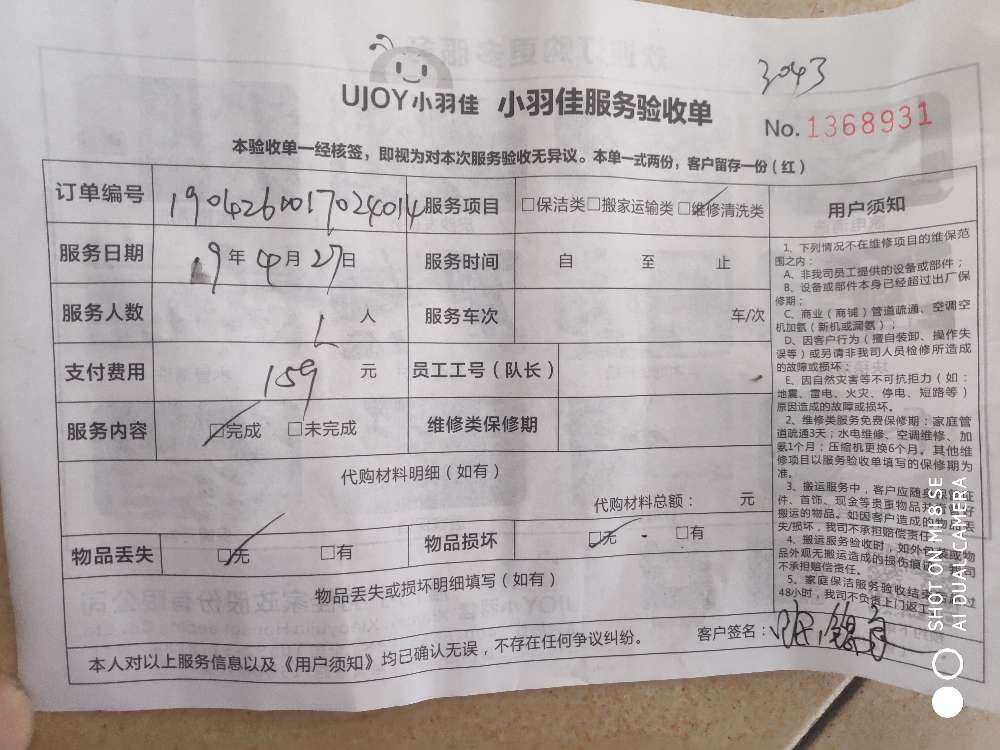 3043
UJOY小羽佳 小羽佳服务验收单
No. 1368931
本验收单一经核签，即视为对本次服务验收无异议。本单一式两份，客户留存一份（红）
订单编号 1904260017024014 服务项目 □保洁类□搬家运输类□维修清洗类
服务日期 19年4月27日 服务时间 自 至 止
服务人数 1 人 服务车次 车/次
支付费用 159 元 员工工号（队长）
服务内容 □完成 □未完成 维修类保修期
代购材料明细（如有）
代购材料总额： 元
物品丢失 □无 □有 物品损坏 □无 □有
物品丢失或损坏明细填写（如有）
本人对以上服务信息以及《用户须知》均已确认无误，不存在任何争议纠纷。 客户签名：
用户须知
1、下列情况不在维修项目的维保范
围之内：
A、非我司员工提供的设备或部件；
B、设备或部件本身已经超过出厂保
修期；
C、商业（商铺）管道疏通、空调空
机加氨（新机或漏氨）；
D、因客户行为（擅自装卸、操作失
误等）或另请非我司人员检修所造成
的故障或损坏；
E、因自然灾害等不可抗拒力（如：
地震、雷电、火灾、停电、短路等）
原因造成的故障或损坏。
2、维修类服务免费保修期：家庭管
道疏通3天；水电维修、空调维修、加
氨1个月；压缩机更换6个月。其他维
修项目以服务验收单填写的保修期为
准。
3、搬运服务中，客户应随身
件、首饰、现金等贵重物品
搬运的物品。如因客户造成的物品丢
失/损坏，我司不承担赔偿责任
4、搬运服务验收时，如外包装或物
品外观无搬运造成的损伤痕
不承担赔偿责任。
5、家庭保洁服务验收结束
48小时，我司不负责上门返工
SHOT ON MI 8 SE
AI DUAL CAMERA